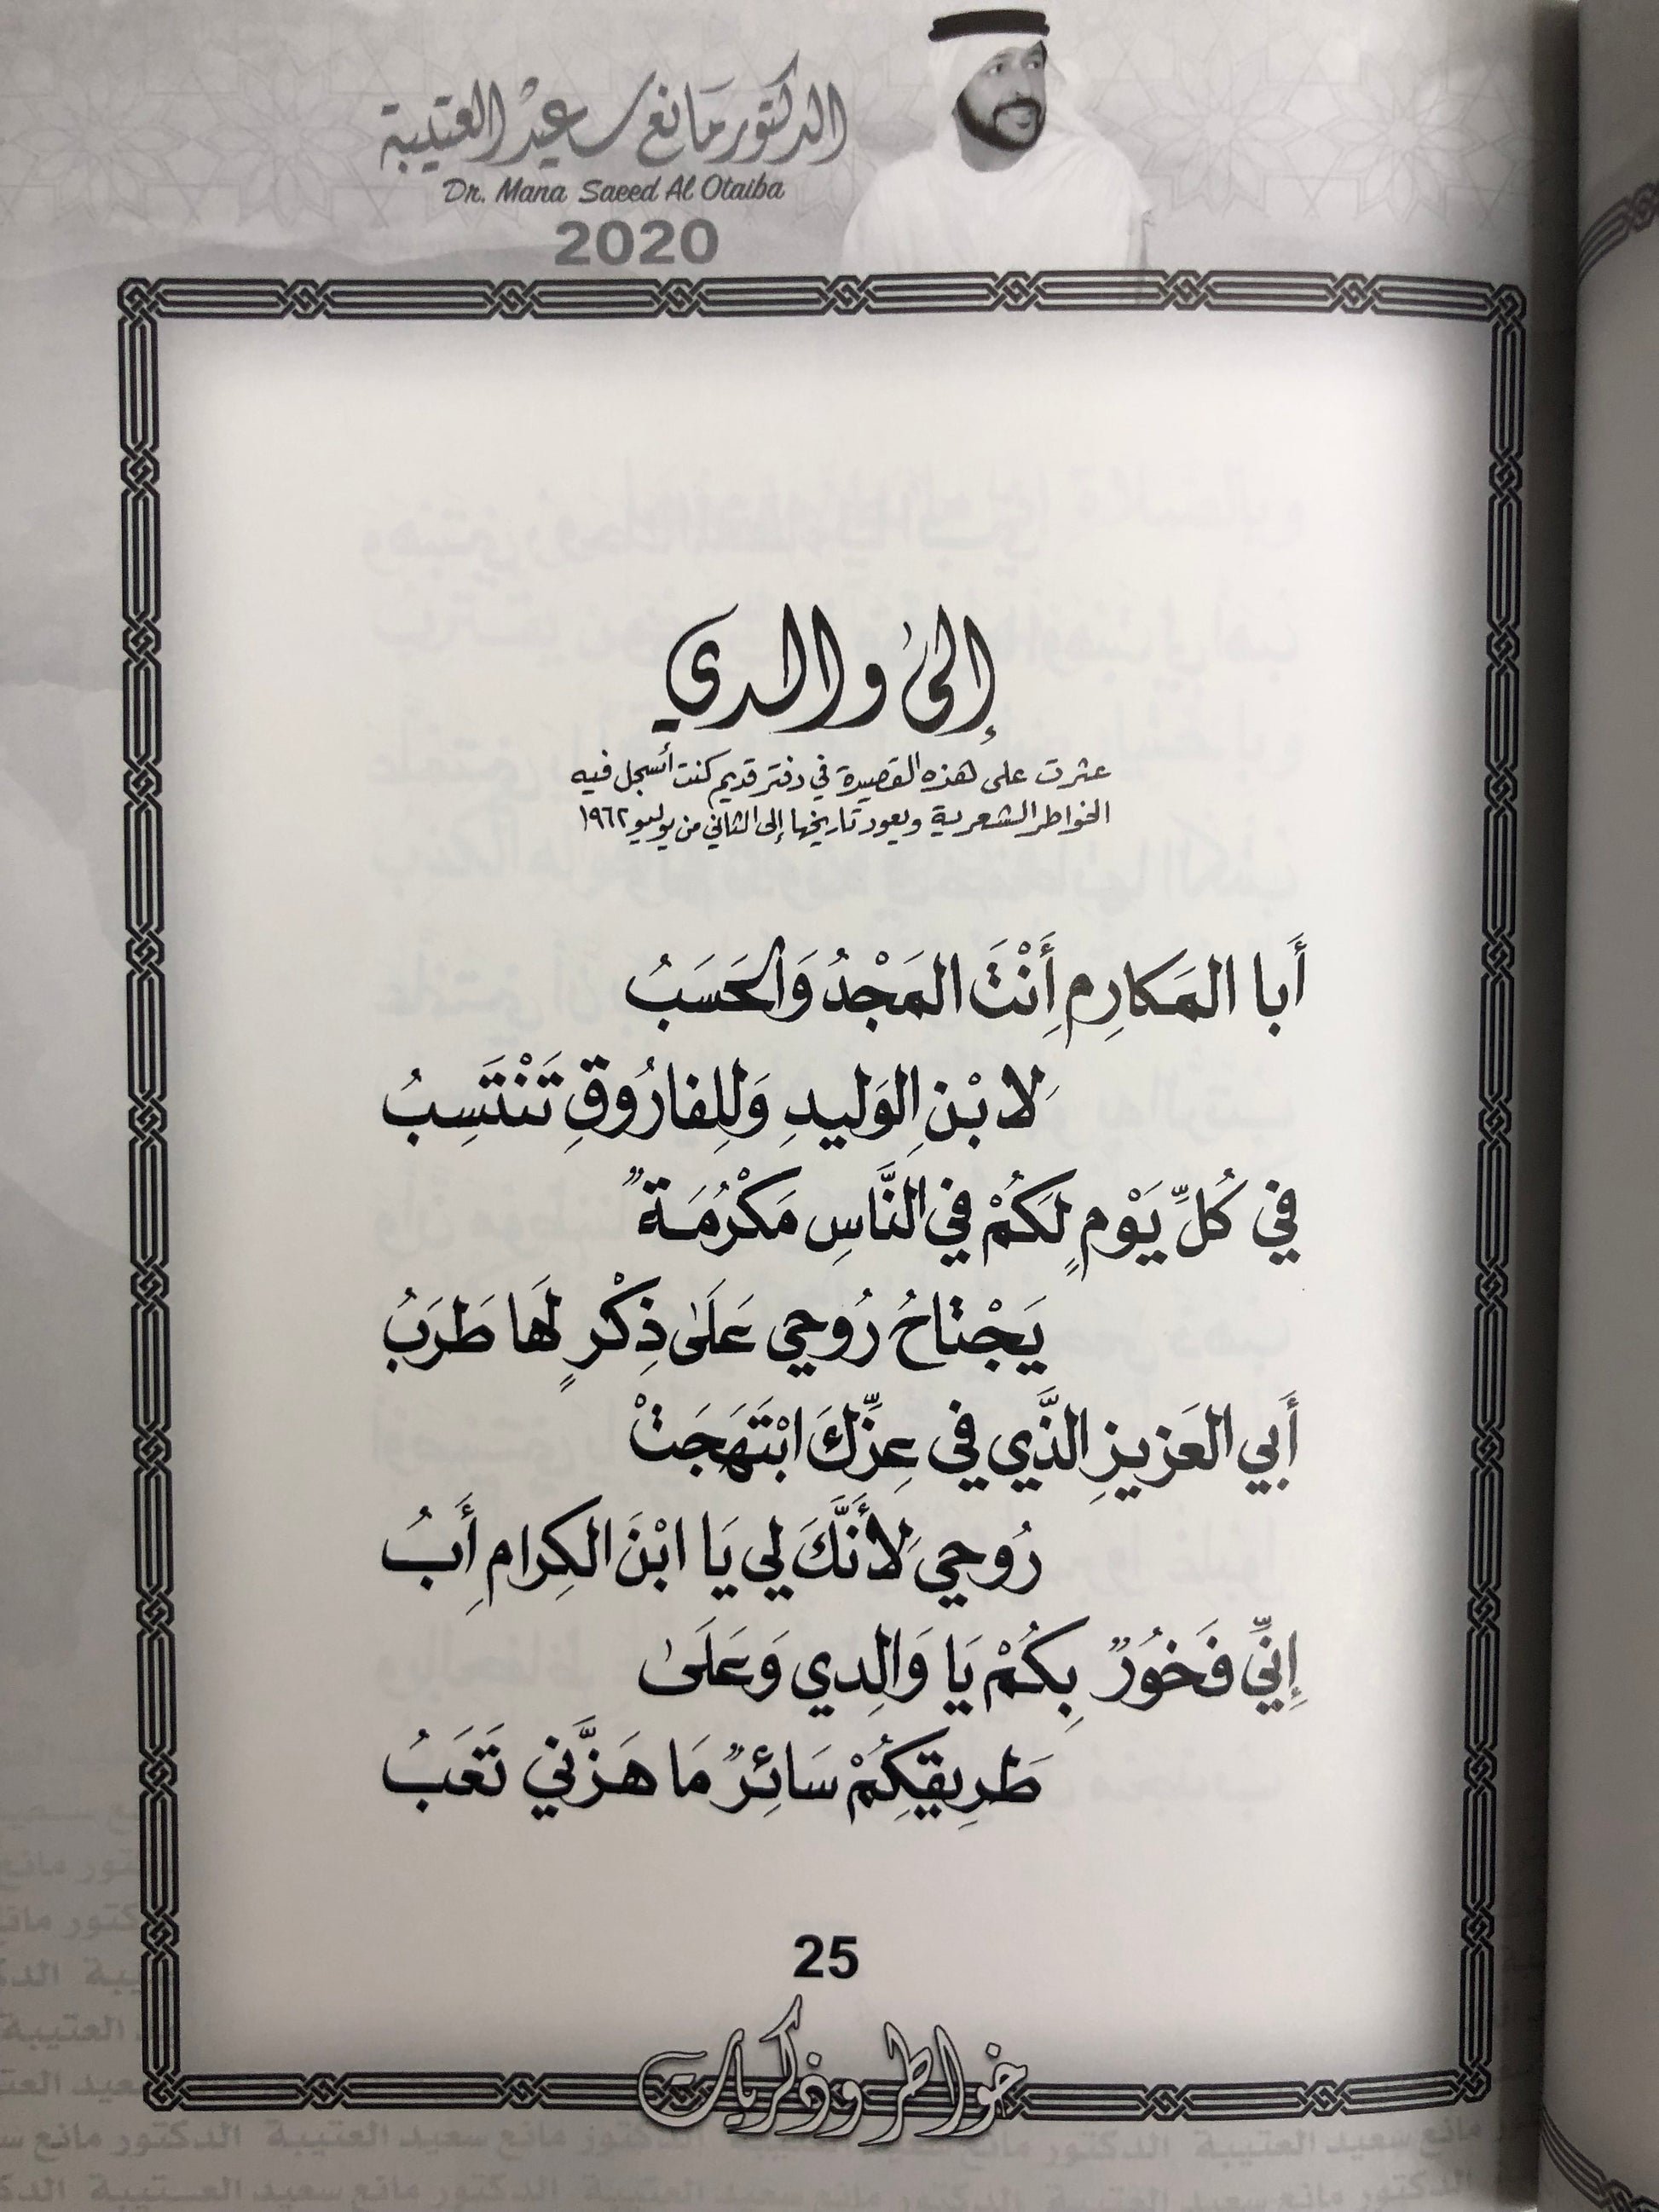 الدكتور مانع سعيد العتيبة
Dr. Mana Saeed Al Otaiba
2020
إلى والدي
عثرت على هذه القصيدة في دفتر قديم كنت أسجل فيه
الخواطر الشعرية ويعود تاريخها إلى الثاني من يوليو ١٩٦٢
أَبا المَكارِمِ أَنْتَ المَجْدُ وَالحَسَبُ
لِابْنِ الوَليدِ وَلِلفارُوقِ تَنْتَسِبُ
في كُلِّ يَوْمٍ لَكُمْ في النَّاسِ مَكْرُمَةٌ
يَجْتاحُ رُوحي عَلَى ذِكْرٍ لَها طَرَبُ
أَبي العَزيزِ الَّذي في عِزِّكَ ابْتَهَجَتْ
رُوحي لِأَنَّكَ لي يَا ابْنَ الكِرامِ أَبُ
إِنِّي فَخُورٌ بِكُمْ يَا وَالِدي وَعَلَى
طَرِيقِكُمْ سَائِرٌ مَا هَزَّني تَعَبُ
25
خواطر وذكريات